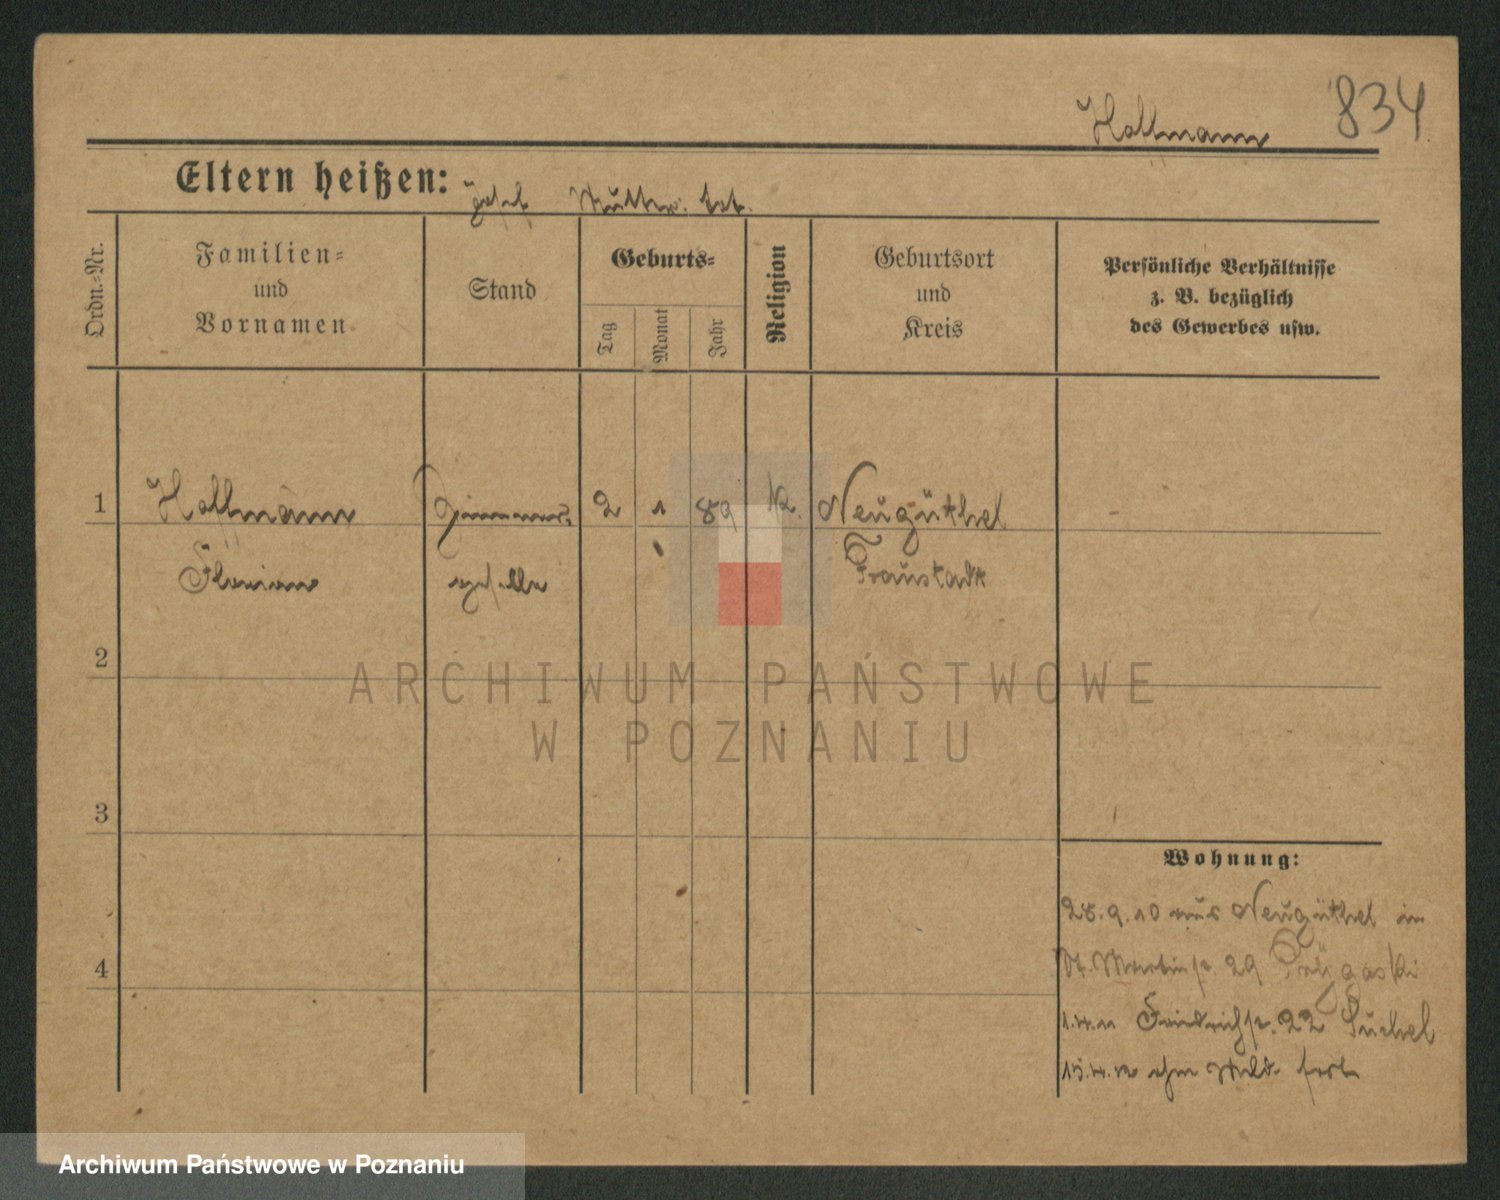 834
Hoffmann
Eltern heißen: Josef Mutter: tot.
Ordn.-Nr.
Familien-
und
Vornamen
Stand
Geburts-
Tag
Monat
Jahr
Religion
Geburtsort
und
Kreis
Persönliche Verhältnisse
z. B. bezüglich
des Gewerbes usw.
1 Hoffmann Zimmer- 2 1 89 K. Neugüthel
Florian geselle Fraustadt
2
3
4
Wohnung:
28.9.10 aus Neugüthel in
St. Martinstr. 29
1.4.11 Friedrichstr. 22 Suchel
15.4.12 ohne Meld. fort
ARCHIWUM PAŃSTWOWE
W POZNANIU
Archiwum Państwowe w Poznaniu